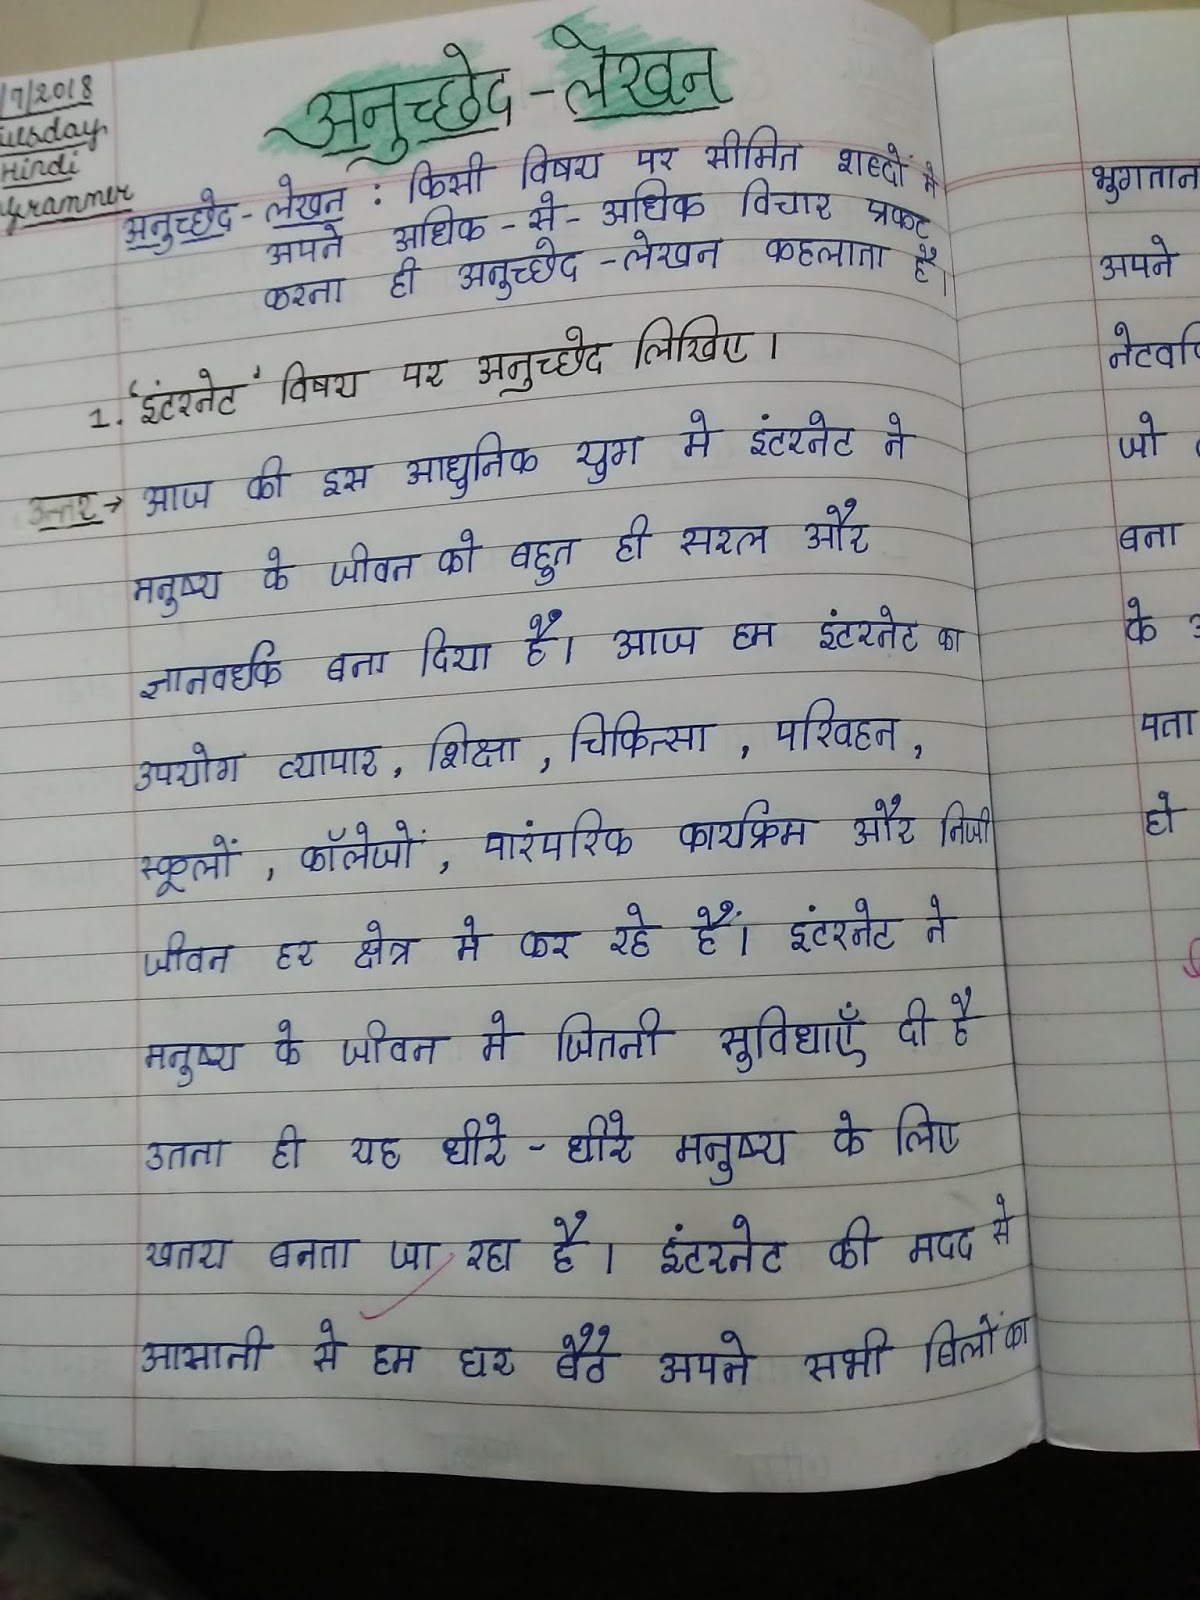 /7/2018
uesday
Hindi
Grammer
अनुच्छेद - लेखन
अनुच्छेद - लेखन : किसी विषय पर सीमित शब्दों मे
अपने अधिक - से - अधिक विचार प्रकट
करना ही अनुच्छेद - लेखन कहलाता है।
1. 'इंटरनेट' विषय पर अनुच्छेद लिखिए ।
उत्तर → आज की इस आधुनिक युग मे इंटरनेट ने
मनुष्य के जीवन को बहुत ही सरल और
ज्ञानवर्धक बना दिया है। आज हम इंटरनेट का
उपयोग व्यापार, शिक्षा, चिकित्सा, परिवहन,
स्कूलों, कॉलेजों, पारंपरिक कार्यक्रम और निजी
जीवन हर क्षेत्र मे कर रहे हैं। इंटरनेट ने
मनुष्य के जीवन मे जितनी सुविधाएँ दी है
उतना ही यह धीरे - धीरे मनुष्य के लिए
खतरा बनता जा रहा है। इंटरनेट की मदद से
आसानी से हम घर बैठे अपने सभी बिलों का
भुगतान
अपने
जो
बना
के
पता
हो